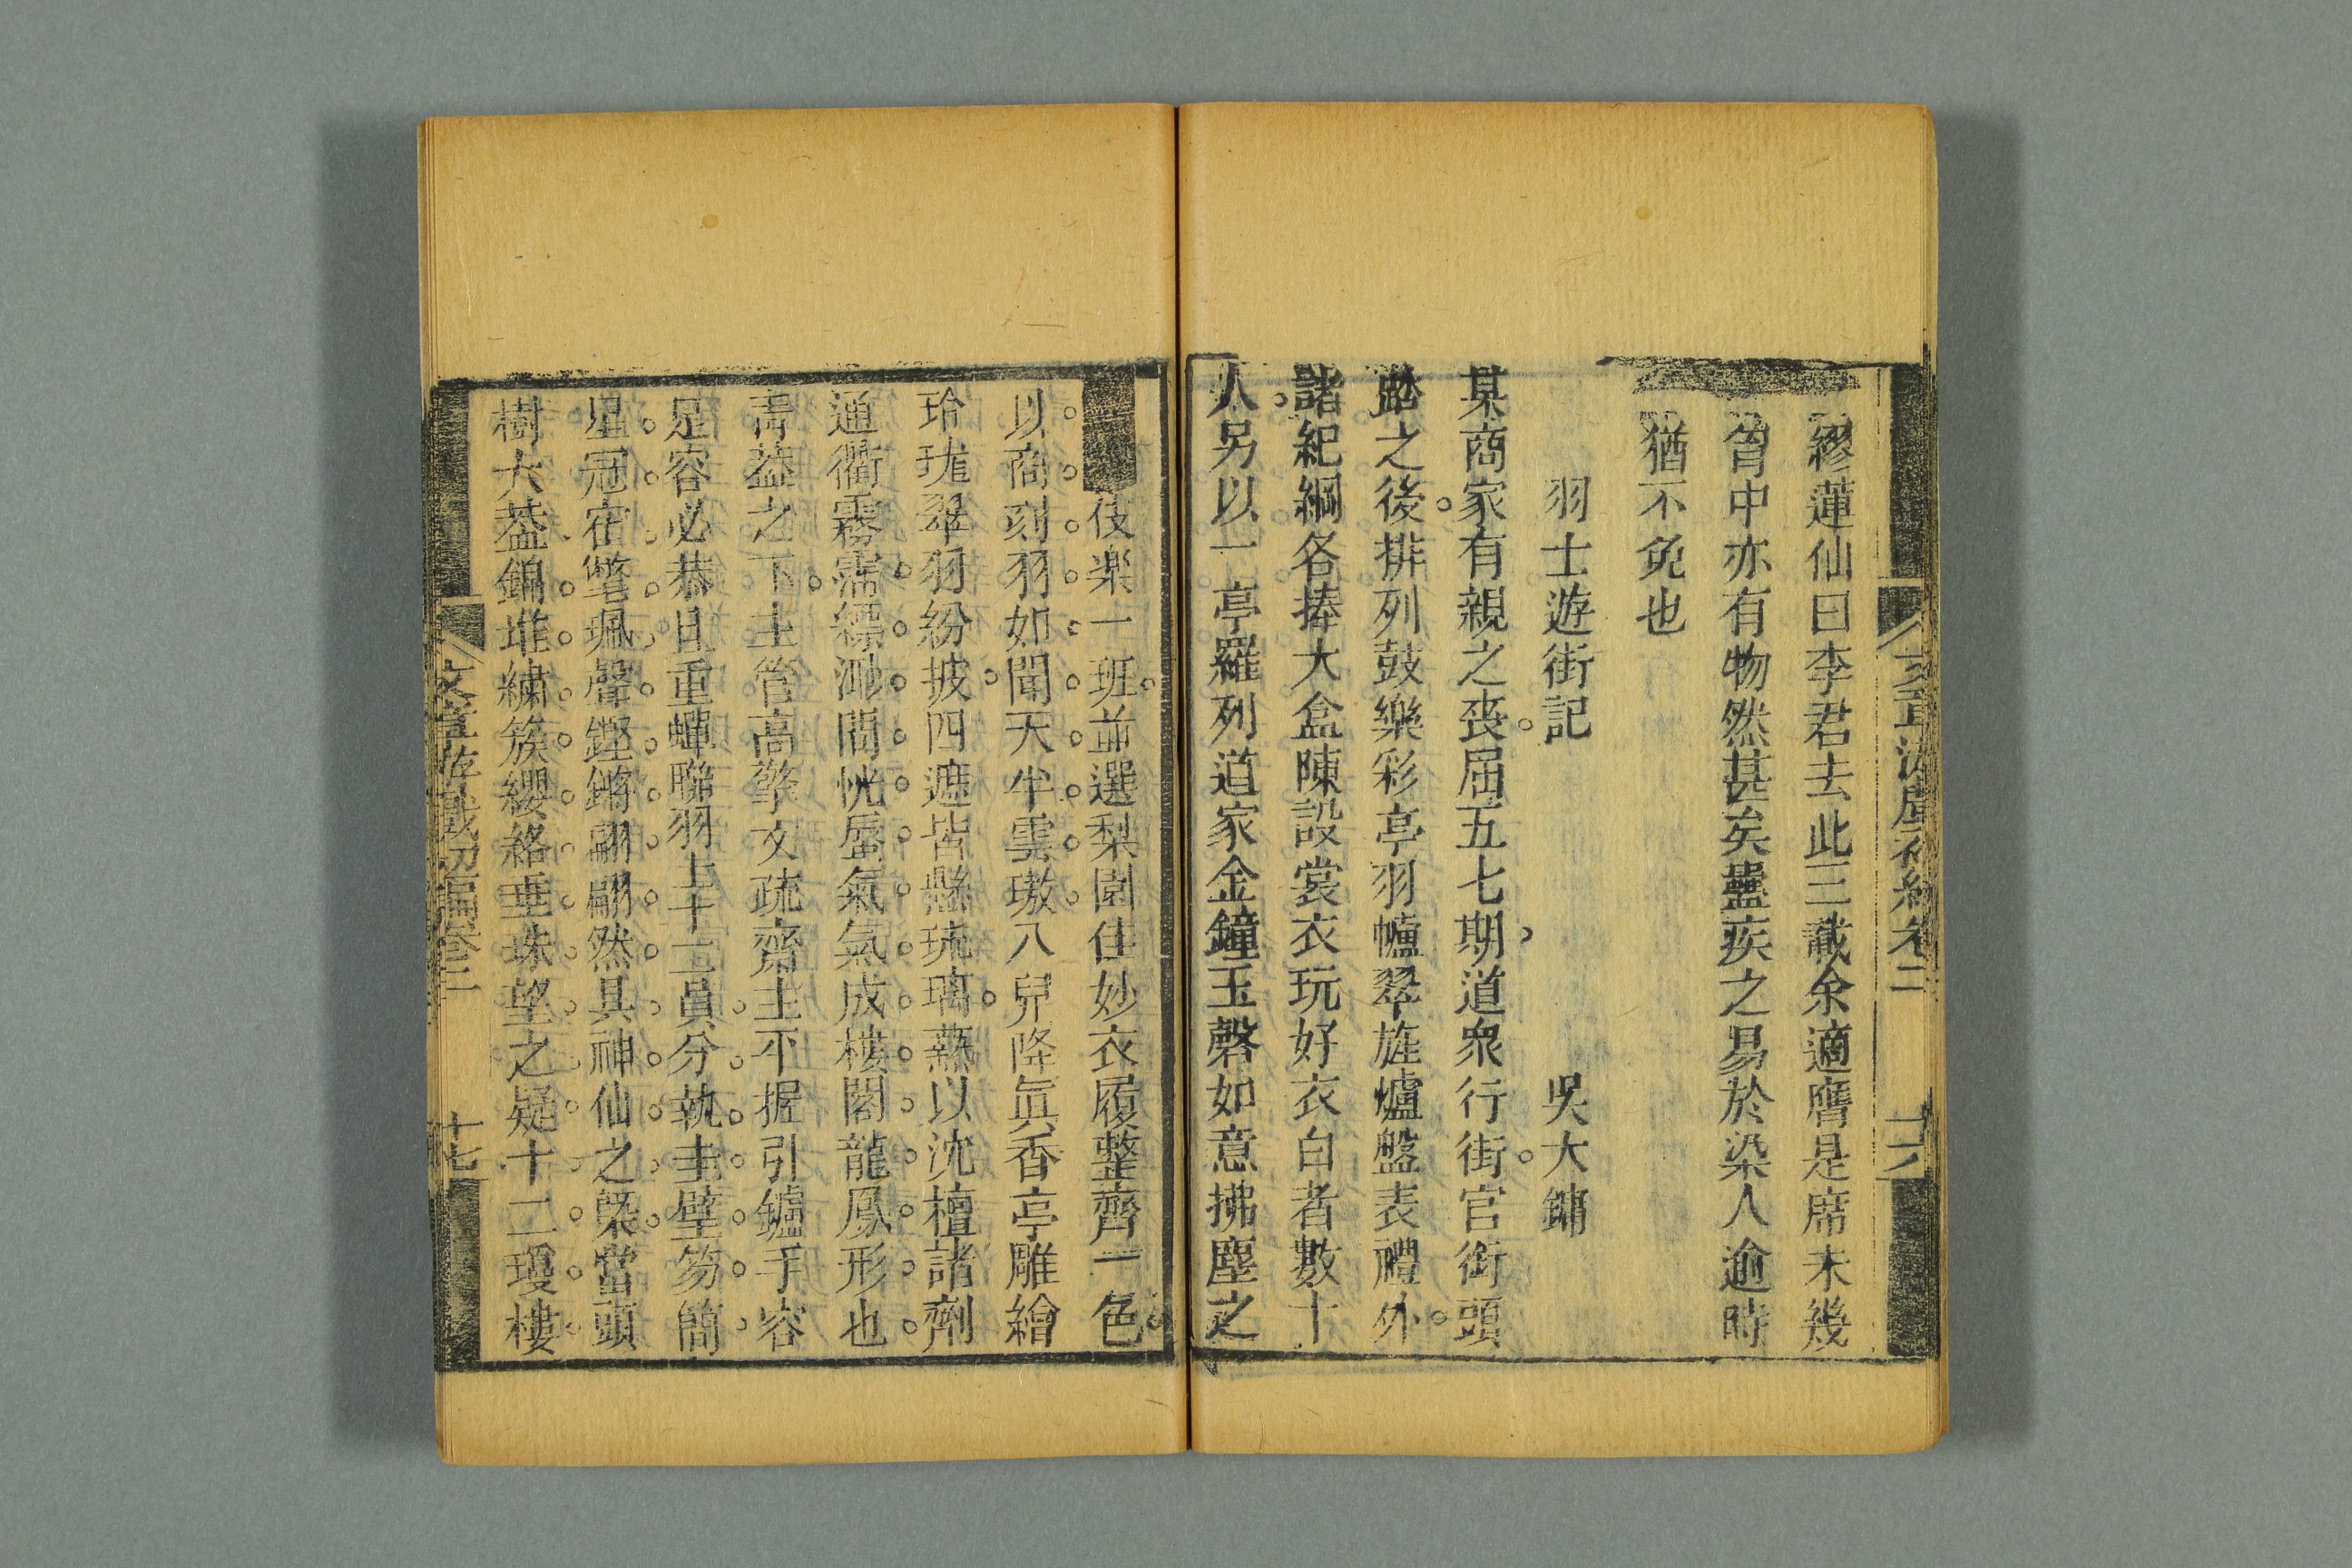 繆蓮仙曰李君去此三載余適膺是席未幾
胷中亦有物然甚矣蠱疾之易於染人逾時
猶不免也
羽士遊街記 吳大鏞
某商家有親之喪屆五七期道衆行街官銜頭
踏之後排列鼓樂彩亭羽幰翠旌爐盤表禮外
諸紀綱各捧大盒陳設裳衣玩好衣白者數十
人另以一亭羅列道家金鐘玉磬如意拂塵之
伎樂一班並選梨園佳妙衣履整齊一色
以商刻羽如聞天半雲璈八兒降眞香亭雕繪
玲瓏翠羽紛披四遮皆懸琉璃爇以沈檀諸劑
通衢霧靄縹渺間恍蜃氣氣成樓閣龍鳳形也
青蓋之下主管高擎文疏齋主不握引鑪手容
足容必恭且重蟬聯羽士十二員分執圭璧笏簡
星冠宕髦珮聲鏗鏘翩翩然具神仙之槩當頭
樹大蓋錦堆繡簇纓絡垂珠望之疑十二瓊樓
文章游戲初編卷二 十七
十六